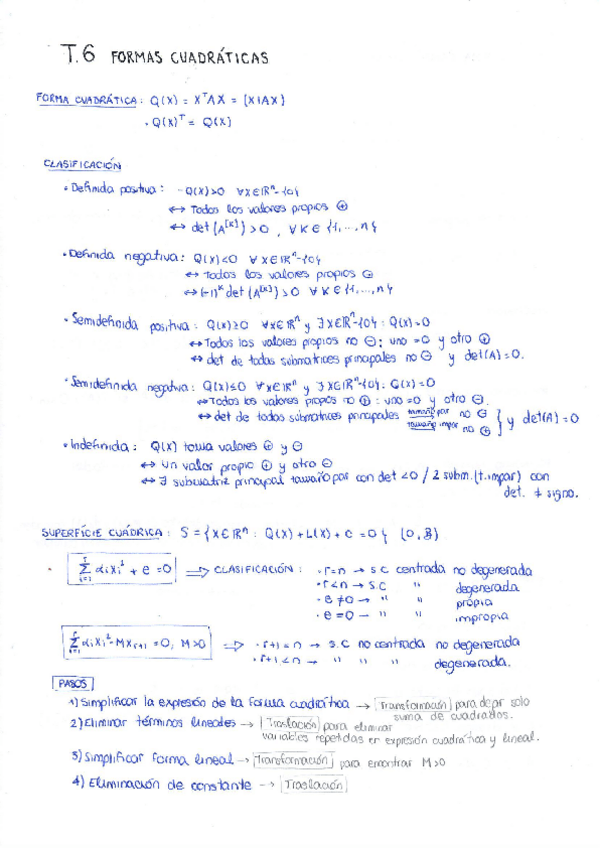 T.6 FORMAS CUADRÁTICAS
FORMA CUADRÁTICA: Q(X) = XᵀAX = [X|AX]
· Q(X)ᵀ = Q(X)
CLASIFICACIÓN
· Definida positiva: Q(X)>0 ∀X∈ℝⁿ-{0}
↔ Todos los valores propios ⊕
↔ det(A^[K])>0, ∀K∈{1,...,n}
· Definida negativa: Q(X)<0 ∀X∈ℝⁿ-{0}
↔ Todos los valores propios ⊖
↔ (-1)ᴷ det(A^[K])>0 ∀K∈{1,...,n}
· Semidefinida positiva: Q(X)≥0 ∀X∈ℝⁿ y ∃X∈ℝⁿ-{0}: Q(X)=0
↔ Todos los valores propios no ⊖: uno =0 y otro ⊕
↔ det de todas submatrices principales no ⊖ y det(A)=0.
· Semidefinida negativa: Q(X)≤0 ∀X∈ℝⁿ y ∃X∈ℝⁿ-{0}: Q(X)=0
↔ Todos los valores propios no ⊕: uno =0 y otro ⊖.
↔ det de todas submatrices principales tamaño par no ⊖ tamaño impar no ⊕ } y det(A)=0
· Indefinida: Q(X) toma valores ⊕ y ⊖
↔ Un valor propio ⊕ y otro ⊖
↔ ∃ submatriz principal tamaño par con det <0 / 2 subm.(t.impar) con
det. ≠ signo.
SUPERFÍCIE CUÁDRICA: S = {X∈ℝⁿ: Q(X)+L(X)+c=0} (O,B)
· Σ_{i=1}^{r} αᵢxᵢ² + e = 0 ⇒ CLASIFICACIÓN: · r=n → s.c centrada no degenerada
· r<n → s.c " degenerada
· e≠0 → " " própia
· e=0 → " " impropia
Σ_{i=1}^{r} αᵢxᵢ² - Mx_{r+1} = 0, M>0 ⇒ · r+1=n → s.c no centrada no degenerada
· r+1<n → " " " degenerada.
PASOS
1) Simplificar la expresión de la forma cuadrática → Transformación para dejar solo
suma de cuadrados.
2) Eliminar términos lineales → Traslación para eliminar
variables repetidas en expresión cuadrática y lineal.
3) Simplificar forma lineal → Transformación para encontrar M>0
4) Eliminación de constante → Traslación